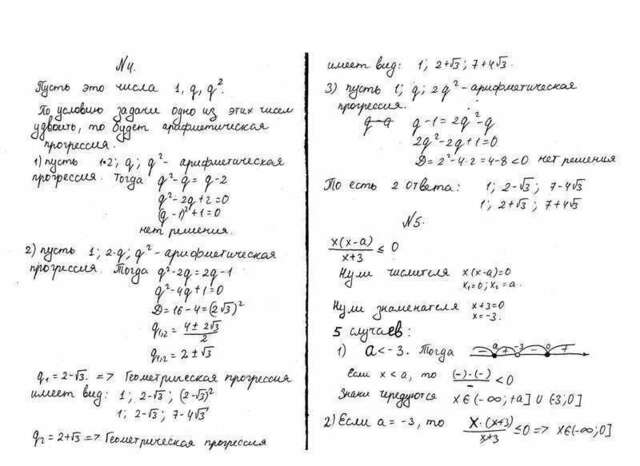 N4.
Пусть это числа 1, q, q².
По условию задачи одно из этих чисел
удвоить, то будет арифметическая
прогрессия.
1) пусть 1·2; q; q² - арифметическая
прогрессия. Тогда q²-q = q-2
q²-2q+2=0
(q-1)²+1=0
нет решения.
2) пусть 1; 2·q; q² - арифметическая
прогрессия. Тогда q²-2q = 2q-1
q²-4q+1=0
D=16-4=(2√3)²
q₁,₂ = (4±2√3)/2
q₁,₂ = 2±√3
q₁=2-√3. => Геометрическая прогрессия
имеет вид: 1; 2-√3; (2-√3)²
1; 2-√3; 7-4√3
q₂=2+√3 => Геометрическая прогрессия
имеет вид: 1; 2+√3; 7+4√3.
3) пусть 1; q; 2q² - арифметическая
прогрессия.
q-1=2q²-q
2q²-2q+1=0
D=2²-4·2=4-8<0 нет решения
То есть 2 ответа: 1; 2-√3; 7-4√3
1; 2+√3; 7+4√3
N5.
x(x-a)/(x+3) ≤ 0
Нули числителя x(x-a)=0
x₁=0; x₂=a.
Нули знаменателя x+3=0
x=-3.
5 случаев:
1) a<-3. Тогда - a + -3 - 0 +
Если x<a, то (-)·(-)/- <0
Знаки чередуются x∈(-∞;+a]∪(-3;0]
2) Если a=-3, то x·(x+3)/(x+3) ≤0 => x∈(-∞;0]